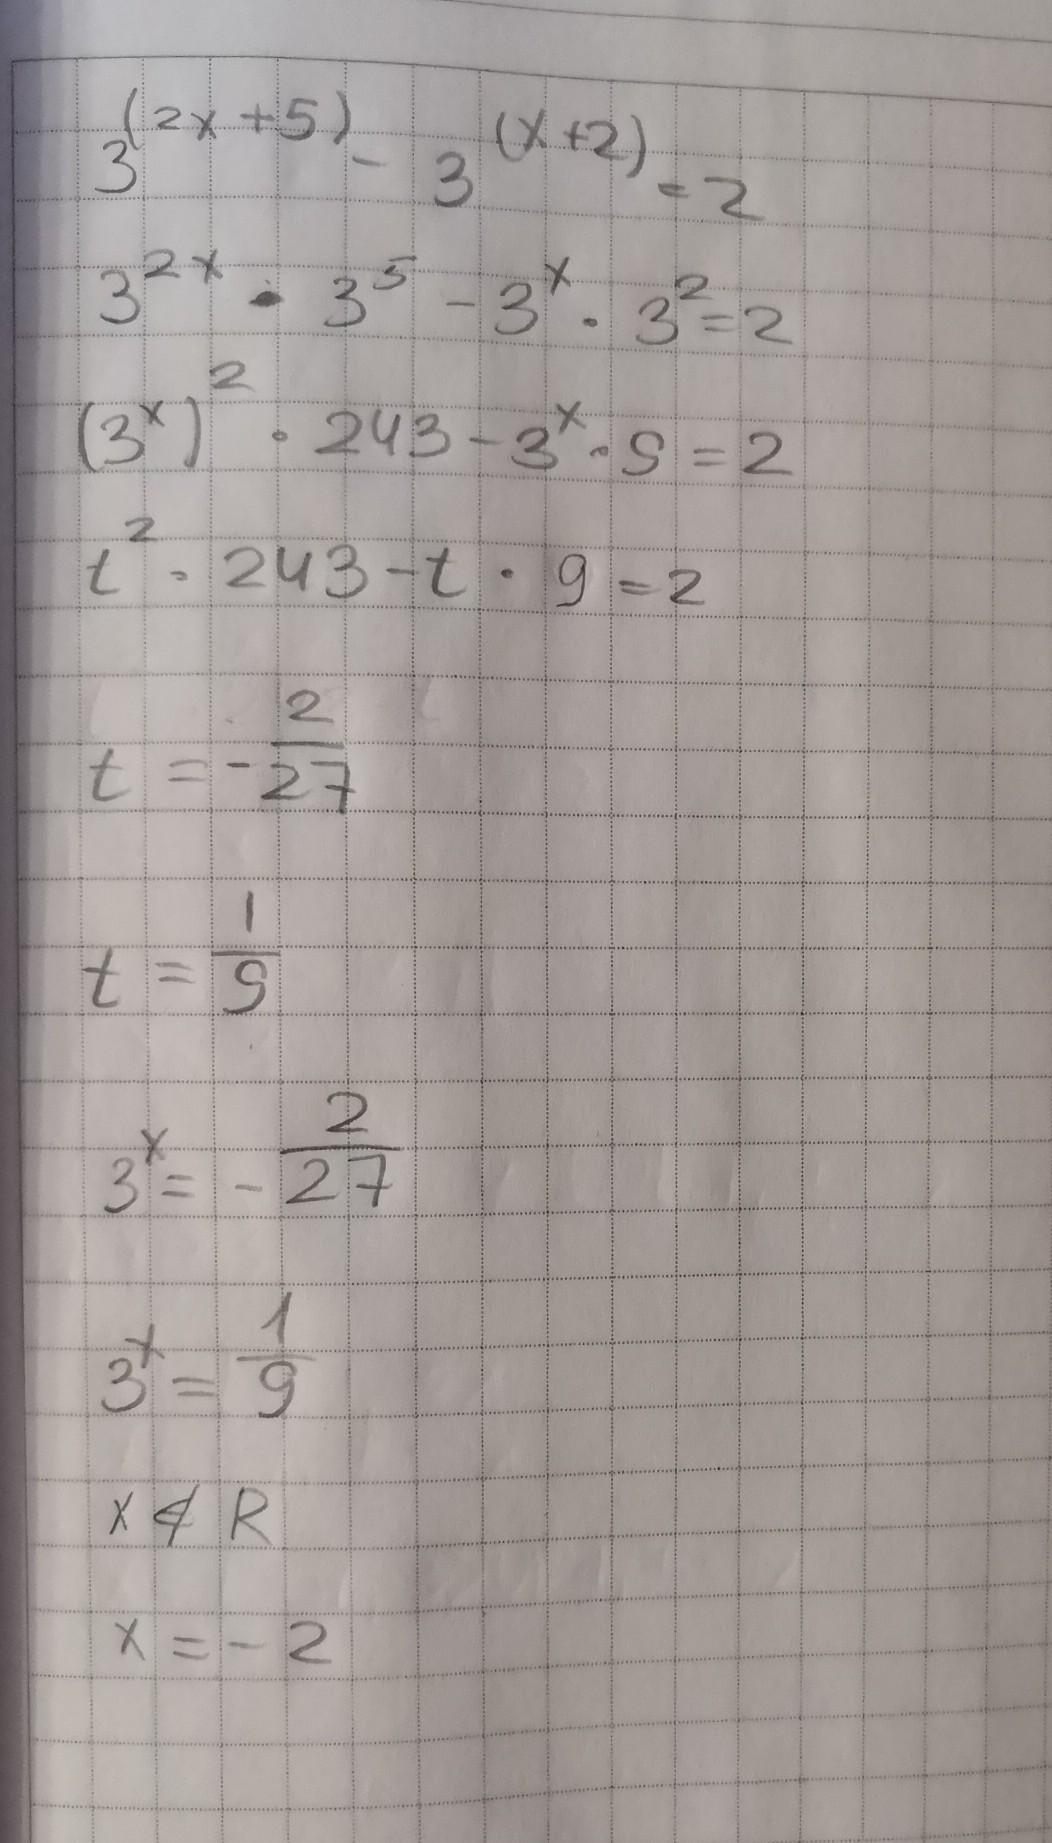 3^(2x+5) - 3^(x+2) = 2
3^2x · 3^5 - 3^x · 3^2 = 2
(3^x)^2 · 243 - 3^x · 9 = 2
t^2 · 243 - t · 9 = 2
t = - 2/27
t = 1/9
3^x = - 2/27
3^x = 1/9
x ∉ R
x = - 2